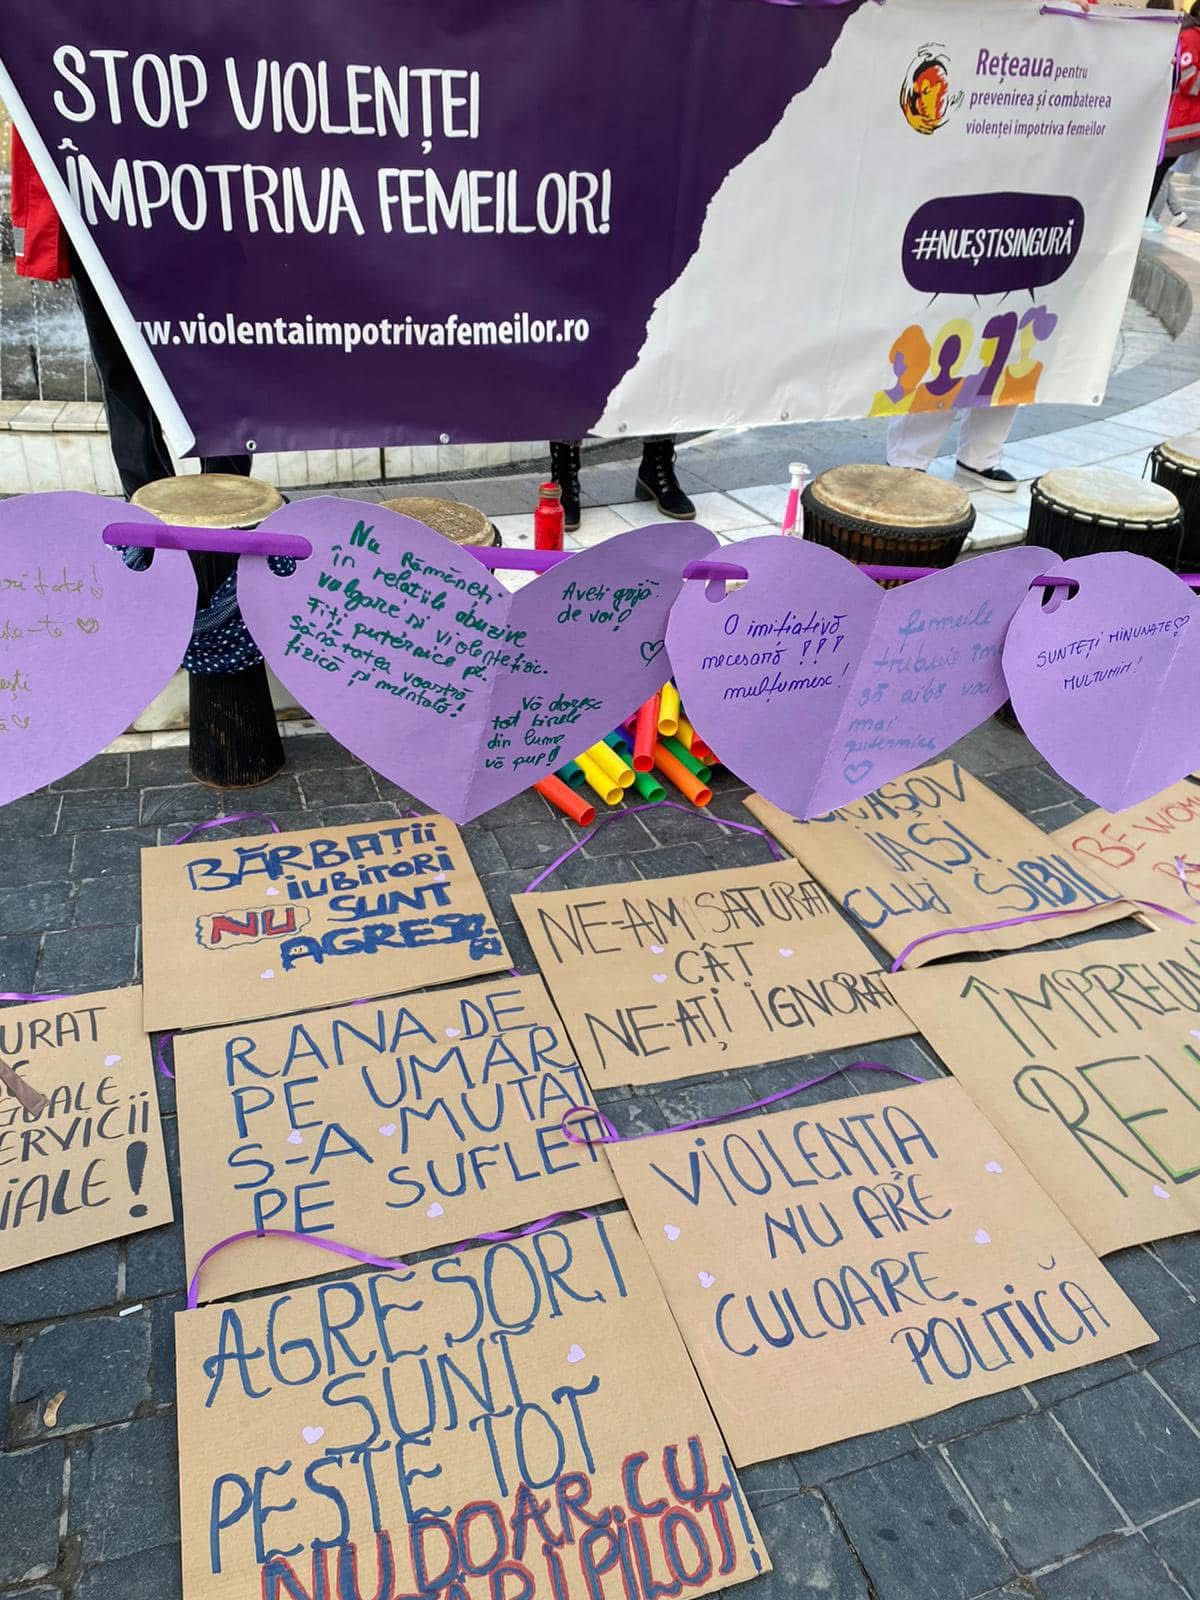 STOP VIOLENȚEI
ÎMPOTRIVA FEMEILOR!
w.violentaimpotrivafemeilor.ro
Rețeaua pentru
prevenirea și combaterea
violenței împotriva femeilor
#NUEȘTISINGURĂ
Nu Rămâneți
în relațiile abuzive
vulgare și violente fizic.
Fiți puternice pt.
Sănătatea voastră
fizică și mentală!
Aveți grijă
de voi!
Vă doresc
tot binele
din lume
vă pup!
O inițiativă
necesară !!!
mulțumesc!
femeile
trebuie
să aibă
mai
puternică
SUNTEȚI MINUNATE
MULȚUMIM!
BĂRBAȚII
IUBITORI
NU SUNT
BRAȘOV
IAȘI
CLUJ SIBIU
BE
NE-AM SATURAT
CÂT
NE-AȚI IGNORAT
ÎMPREUN
RANA DE
PE UMĂR
S-A MUTAT
PE SUFLET
URAT
ERVICII
IALE!
VIOLENȚA
NU ARE
CULOARE
POLITICĂ
AGRESORI
SUNT
PESTE TOT
NU DOAR CU
PILOȚI!